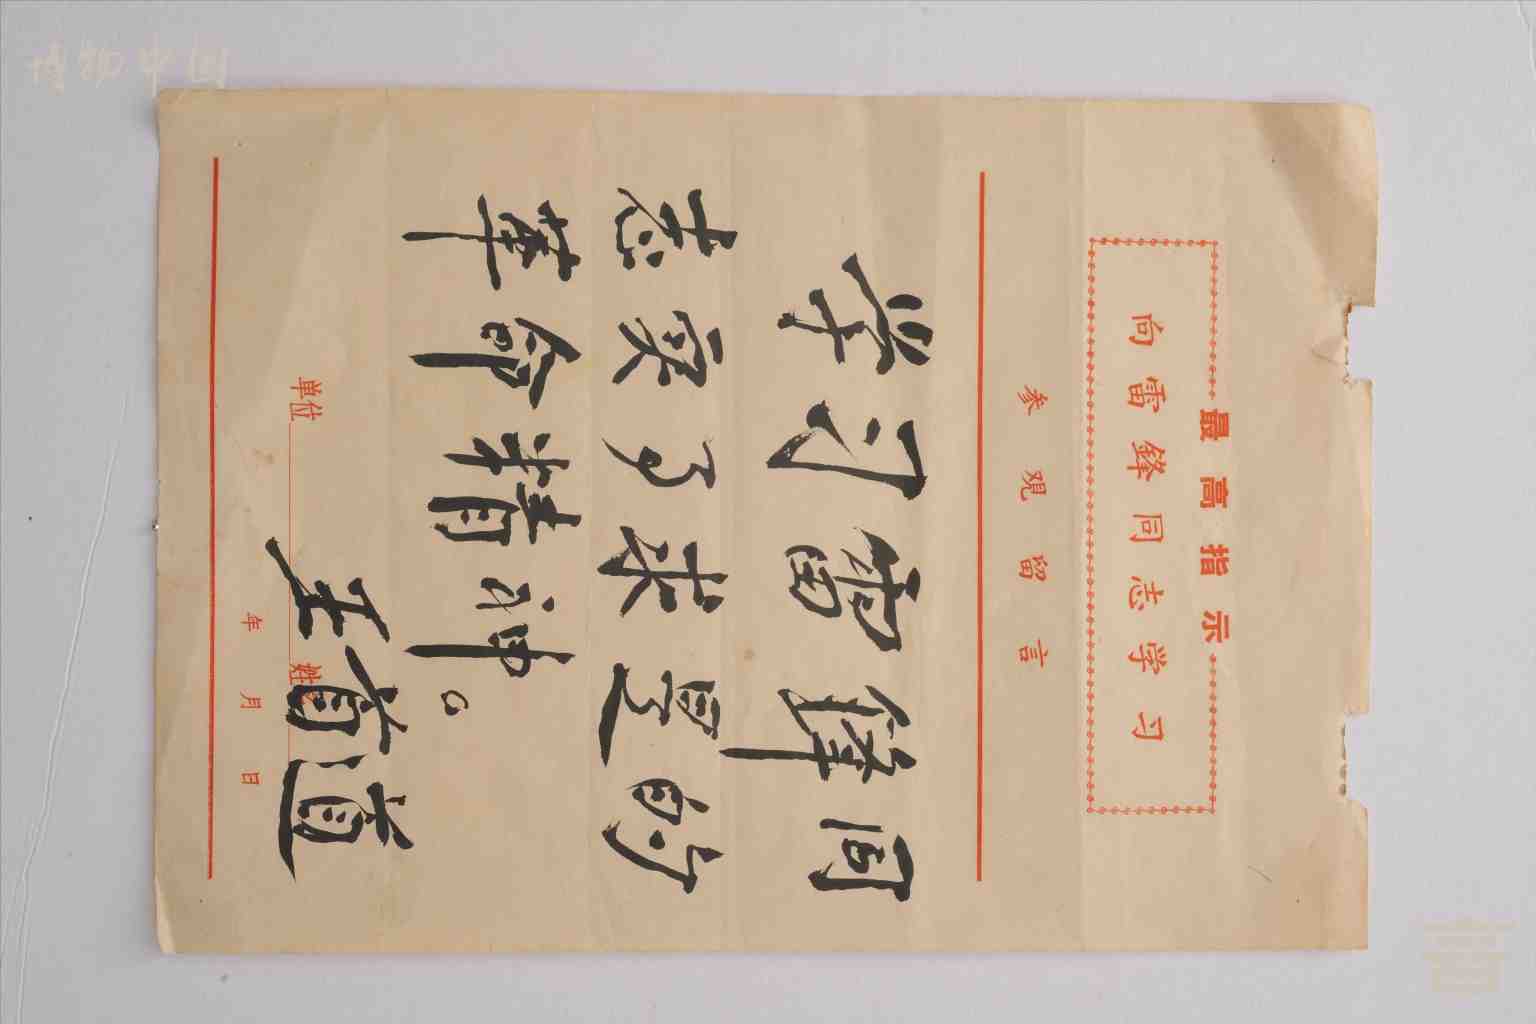 博物中国
最高指示
向雷鋒同志学习
参观留言
学习雷锋同
志实事求是的
革命精神。
王首道
单位 姓
年 月 日